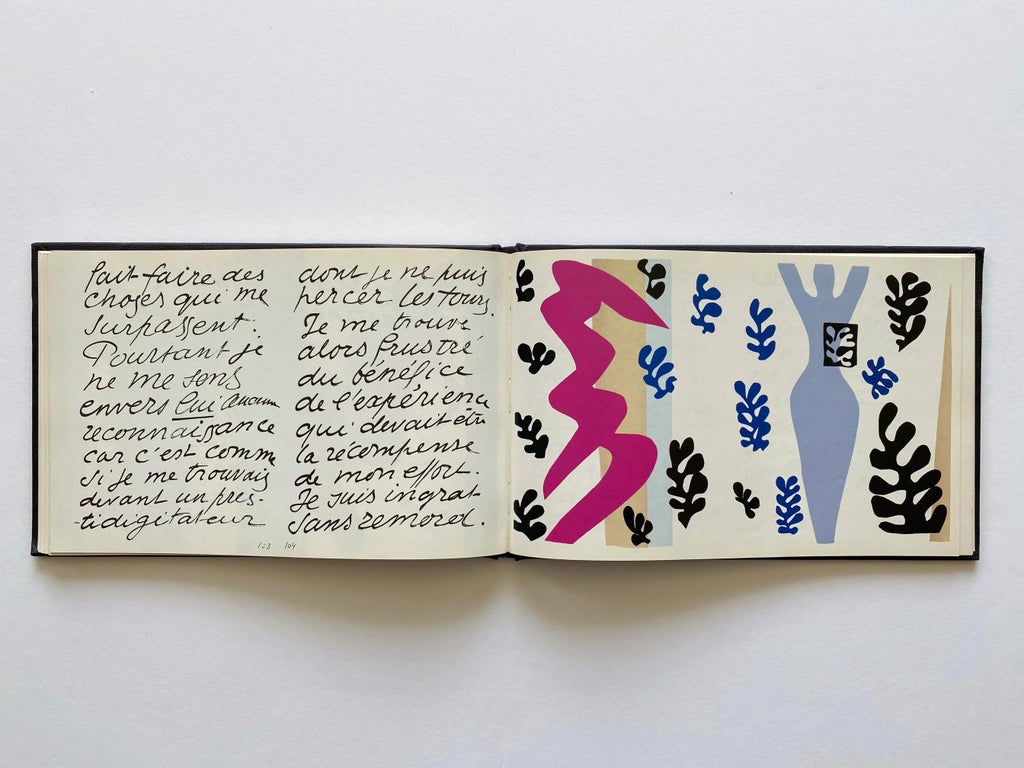 fait faire des
choses qui me
surpassent.
Pourtant je
ne me sens
envers lui aucune
reconnaissance
car c'est comme
si je me trouvais
devant un pres-
tidigitateur
dont je ne puis
percer les tours.
Je me trouve
alors frustré
du bénéfice
de l'expérience
qui devait être
la récompense
de mon effort.
Je suis ingrat
sans remord.
103 104